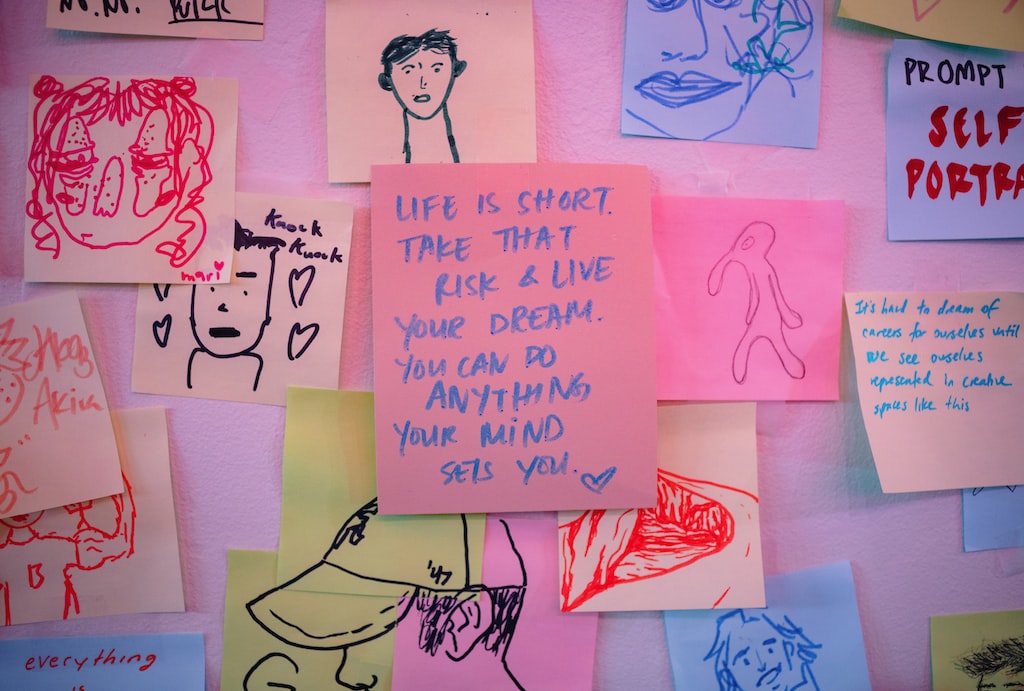 PROMPT
SELF
PORTRA
LIFE IS SHORT.
TAKE THAT
RISK & LIVE
YOUR DREAM.
YOU CAN DO
ANYTHING
YOUR MIND
SETS YOU.
Knock
Knock
mari
It's hard to dream of
careers for ourselves until
we see ourselves
represented in creative
spaces like this
Akira
'47
B
everything
is